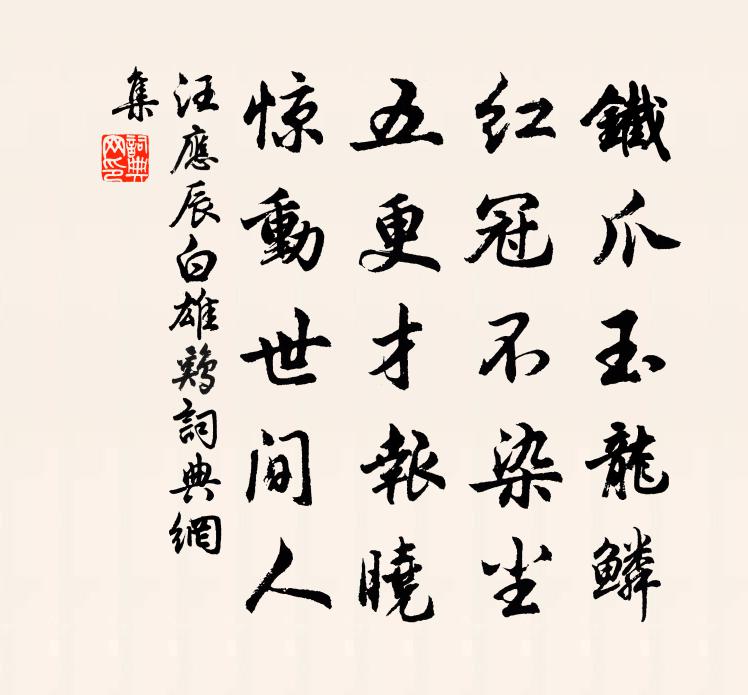 鐵爪玉龍鱗
红冠不染尘
五更才報曉
惊動世间人
汪應辰白雄鷄詞典網
集
詞典
网印